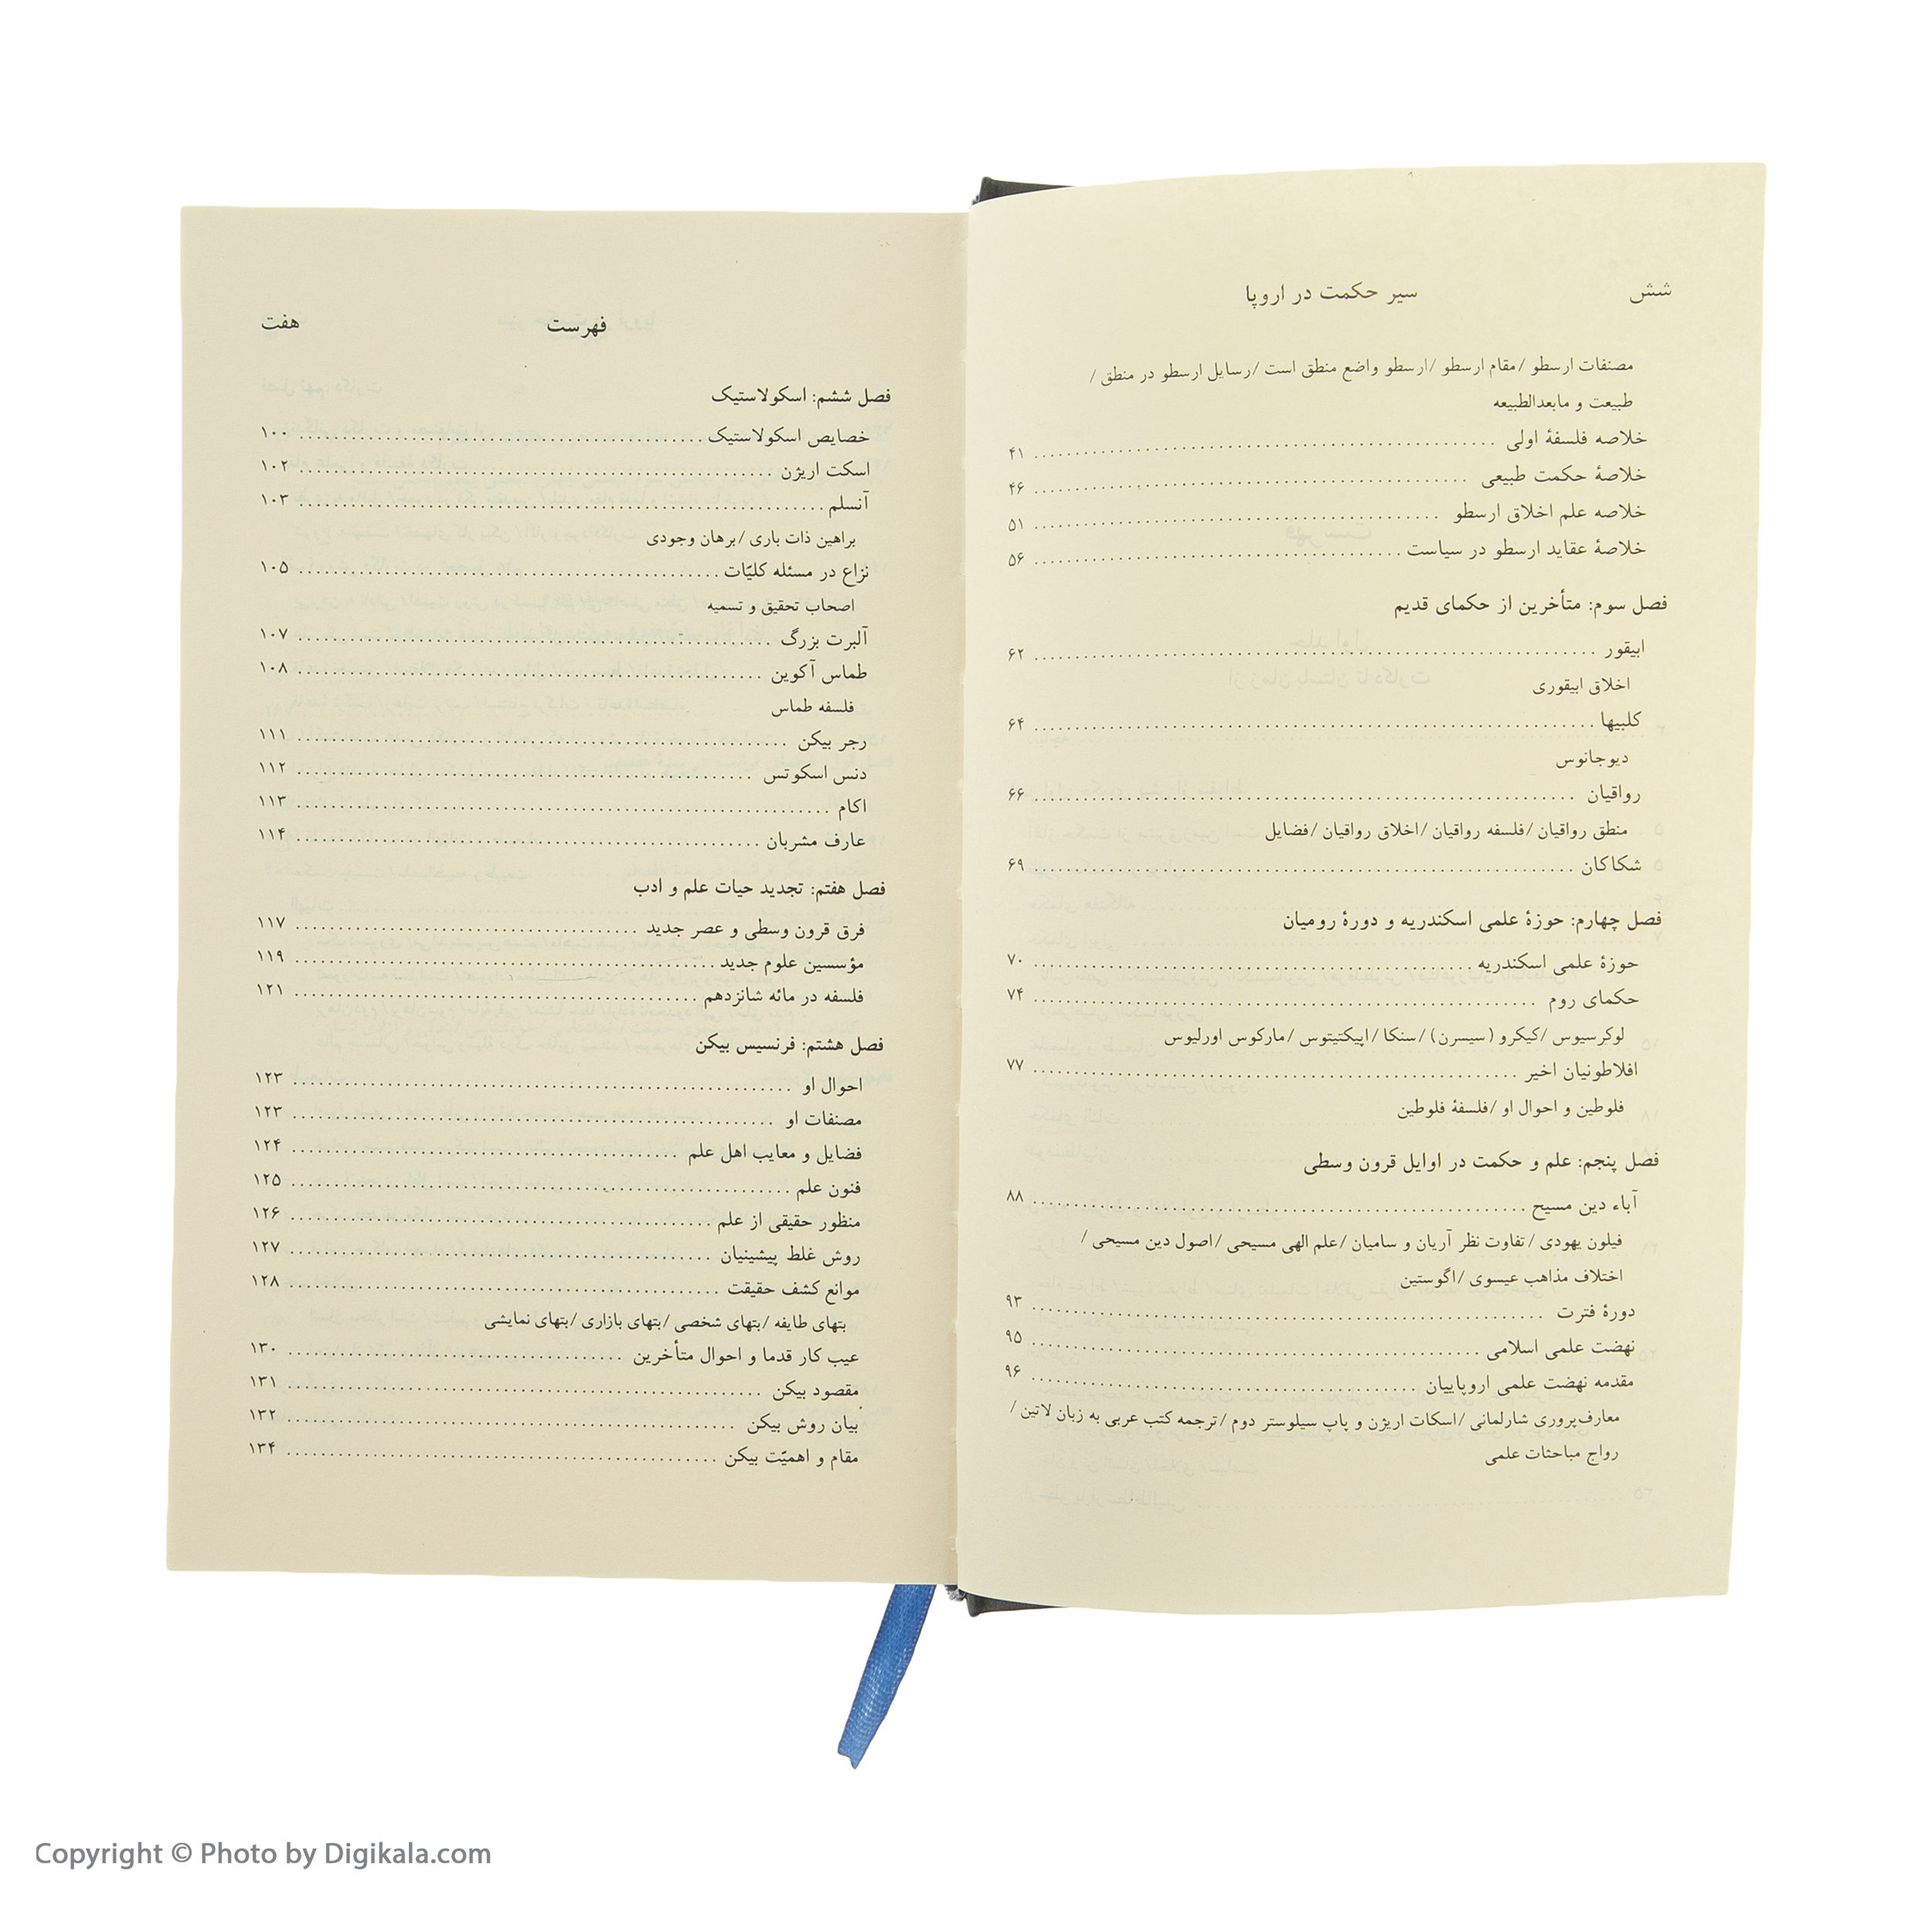 شش
سیر حکمت در اروپا
مصنفات ارسطو / مقام ارسطو / ارسطو واضع منطق است / رسایل ارسطو در منطق /
طبیعت و مابعدالطبیعه
خلاصه فلسفهٔ اولی ........ ۴۱
خلاصهٔ حکمت طبیعی ........ ۴۶
خلاصه علم اخلاق ارسطو ........ ۵۱
خلاصهٔ عقاید ارسطو در سیاست ........ ۵۶
فصل سوم: متأخرین از حکمای قدیم
ابیقور ........ ۶۲
اخلاق ابیقوری
کلبیها ........ ۶۴
دیوجانوس
رواقیان ........ ۶۶
منطق رواقیان / فلسفه رواقیان / اخلاق رواقیان / فضایل
شکاکان ........ ۶۹
فصل چهارم: حوزهٔ علمی اسکندریه و دورهٔ رومیان
حوزهٔ علمی اسکندریه ........ ۷۰
حکمای روم ........ ۷۴
لوکرسیوس / کیکرو (سیسرن) / سنکا / اپیکتیتوس / مارکوس اورلیوس
افلاطونیان اخیر ........ ۷۷
فلوطین و احوال او / فلسفهٔ فلوطین
فصل پنجم: علم و حکمت در اوایل قرون وسطی
آباء دین مسیح ........ ۸۸
فیلون یهودی / تفاوت نظر آریان و سامیان / علم الهی مسیحی / اصول دین مسیحی /
اختلاف مذاهب عیسوی / اگوستین
دورهٔ فترت ........ ۹۳
نهضت علمی اسلامی ........ ۹۵
مقدمه نهضت علمی اروپاییان ........ ۹۶
معارف‌پروری شارلمانی / اسکات اریژن و پاپ سیلوستر دوم / ترجمه کتب عربی به زبان لاتین /
رواج مباحثات علمی
فهرست
هفت
فصل ششم: اسکولاستیک
خصایص اسکولاستیک ........ ۱۰۰
اسکت اریژن ........ ۱۰۲
آنسلم ........ ۱۰۳
براهین ذات باری / برهان وجودی
نزاع در مسئله کلیّات ........ ۱۰۵
اصحاب تحقیق و تسمیه
آلبرت بزرگ ........ ۱۰۷
طماس آکوین ........ ۱۰۸
فلسفه طماس
رجر بیکن ........ ۱۱۱
دنس اسکوتس ........ ۱۱۲
اکام ........ ۱۱۳
عارف مشربان ........ ۱۱۴
فصل هفتم: تجدید حیات علم و ادب
فرق قرون وسطی و عصر جدید ........ ۱۱۷
مؤسسین علوم جدید ........ ۱۱۹
فلسفه در مائه شانزدهم ........ ۱۲۱
فصل هشتم: فرنسیس بیکن
احوال او ........ ۱۲۳
مصنفات او ........ ۱۲۳
فضایل و معایب اهل علم ........ ۱۲۴
فنون علم ........ ۱۲۵
منظور حقیقی از علم ........ ۱۲۶
روش غلط پیشینیان ........ ۱۲۷
موانع کشف حقیقت ........ ۱۲۸
بتهای طایفه / بتهای شخصی / بتهای بازاری / بتهای نمایشی
عیب کار قدما و احوال متأخرین ........ ۱۳۰
مقصود بیکن ........ ۱۳۱
بیان روش بیکن ........ ۱۳۲
مقام و اهمیّت بیکن ........ ۱۳۴
Copyright © Photo by Digikala.com